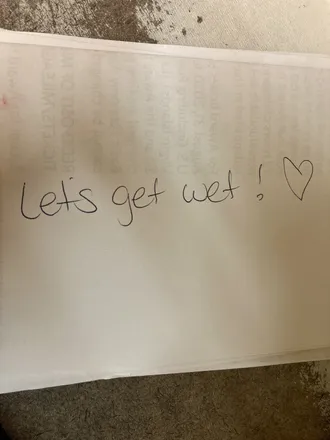 Let's get wet! ♡